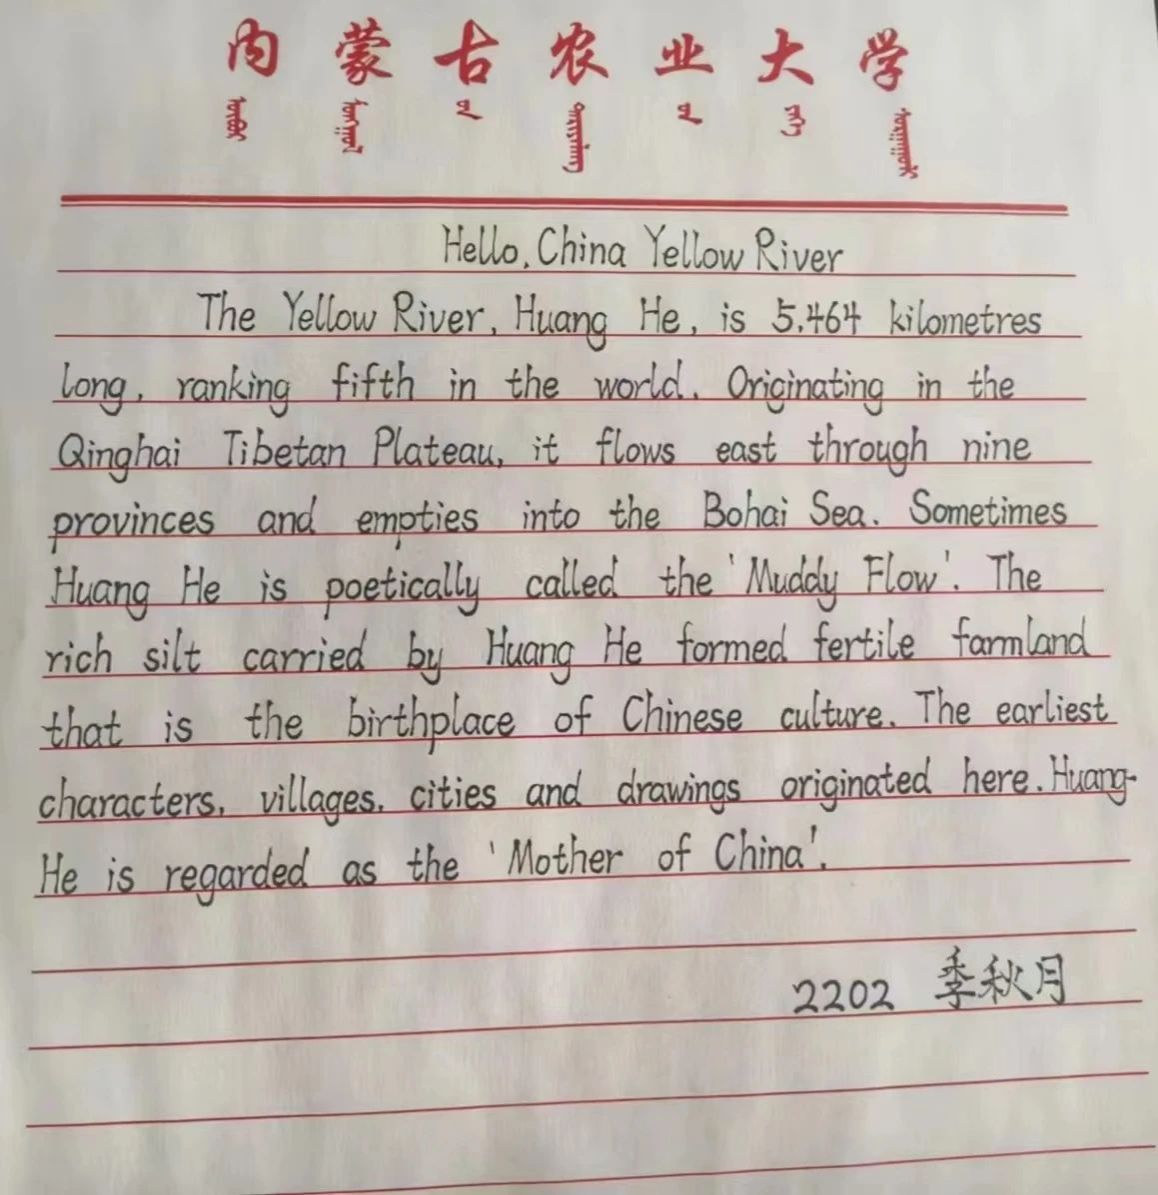 内蒙古农业大学
Hello, China Yellow River
The Yellow River, Huang He, is 5,464 kilometres
long, ranking fifth in the world. Originating in the
Qinghai Tibetan Plateau, it flows east through nine
provinces and empties into the Bohai Sea. Sometimes
Huang He is poetically called the 'Muddy Flow'. The
rich silt carried by Huang He formed fertile farmland
that is the birthplace of Chinese culture. The earliest
characters, villages, cities and drawings originated here. Huang-
He is regarded as the 'Mother of China'.
2202 季秋月